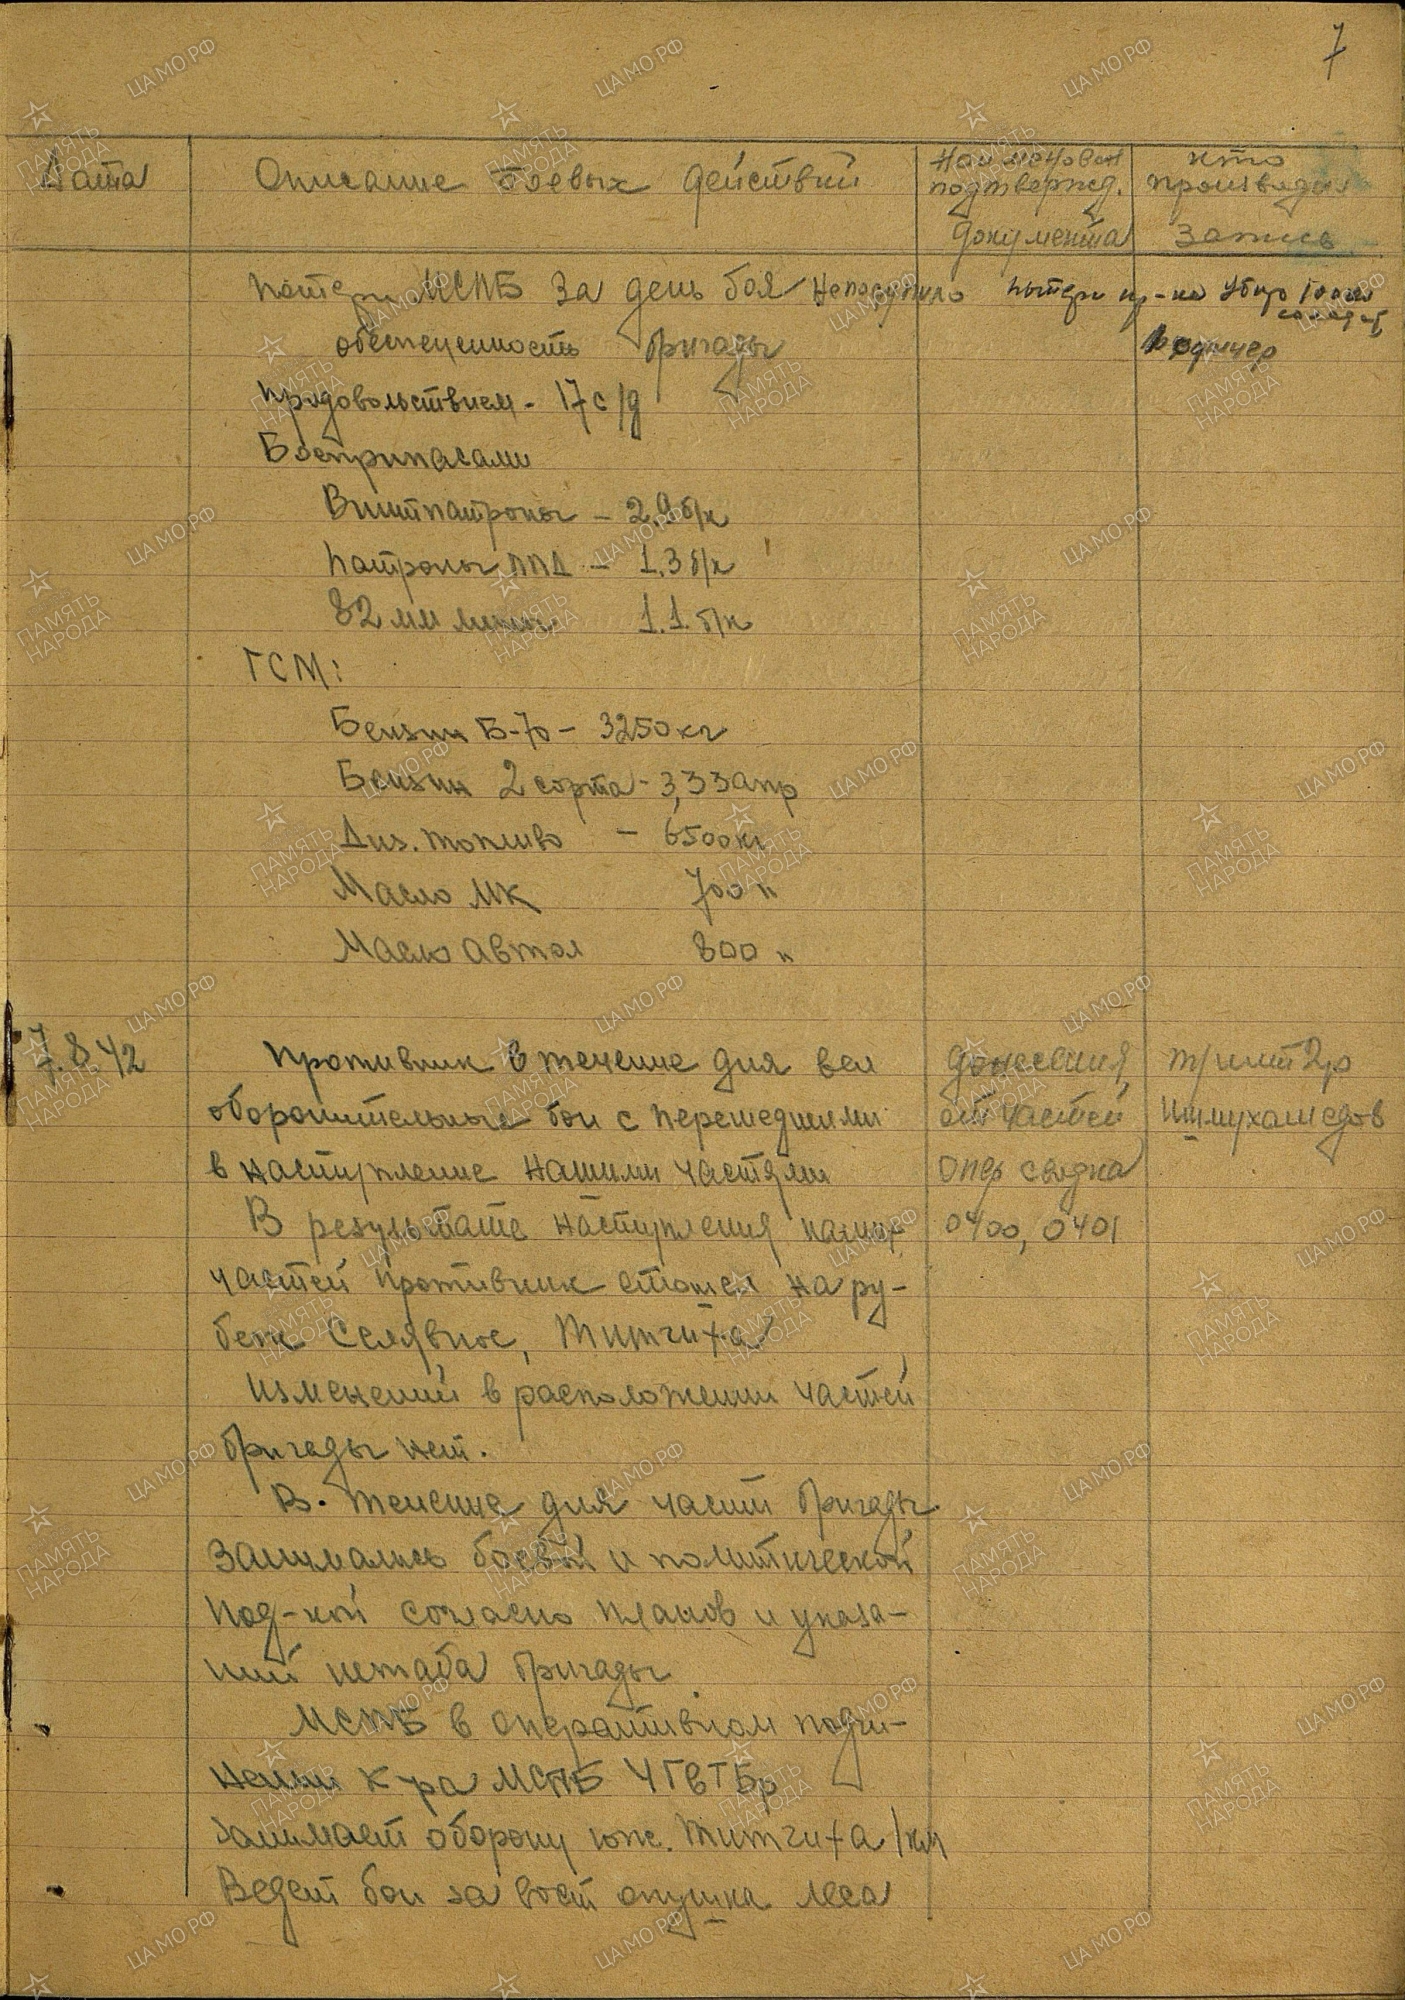 7
Дата
Описание боевых действий
Наименован
подтвержд.
документа
кто
производил
запись
Потери МСПБ за день боя непоступило
Потери пр-ка убито 100
1 офицер
обеспеченность бригады
Продовольствием - 17 с/д
Боеприпасами
Винтпатроны - 2.9 б/к
Патроны ППД - 1.3 б/к
82 мм мины 1.1 б/к
ГСМ:
Бензин Б-70 - 3250 кг
Бензин 2 сорта - 3,33 апр
Диз. топливо - 6500 кг
Масло МК 700 "
Масло автол 800 "
7.8.42
Противник в течение дня вел
оборонительные бои с перешедшими
в наступление нашими частями
В результате наступления наших
частей противник отошел на ру-
беж Селявное, Титчиха
Изменений в расположении частей
бригады нет.
В. течение дня части бригады
занимались боевой и политической
под-кой согласно планов и указа-
ний штаба бригады.
МСПБ в оперативном подчи-
нении к-ра МСПБ 4ГвТБр
занимает оборону юж. Титчиха 1 км
Ведет бои за вост опушка леса
Донесения
от частей
Опер сводка
0400, 0401
Т/инт 2р
Шимухамедов